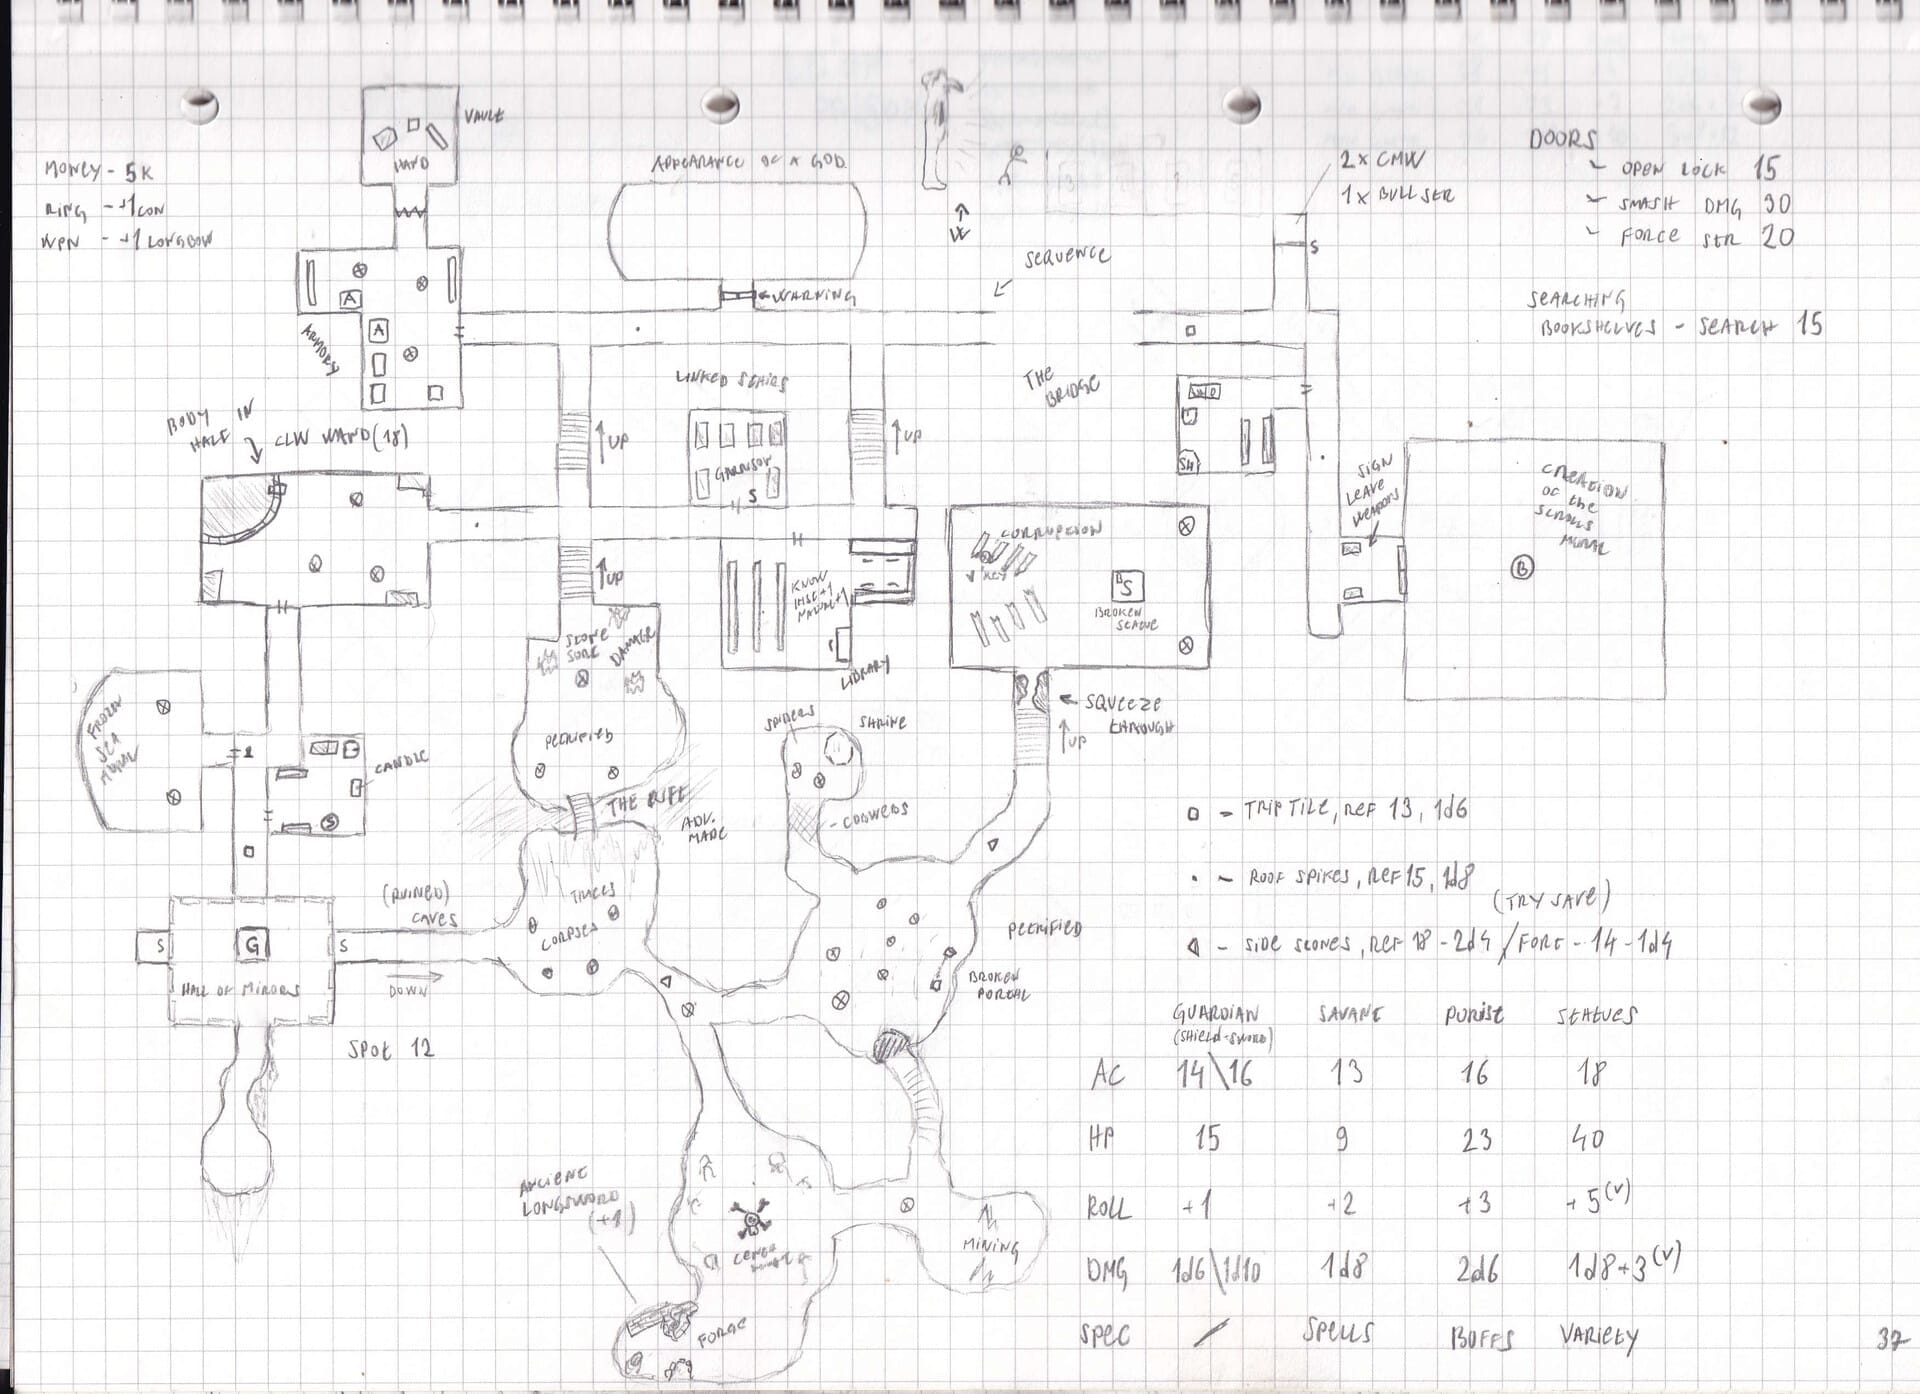 VAULT
HAND
MONEY - 5K
RING - +1 CON
WPN - +1 LONGBOW
APPEARANCE OF A GOD
WARNING
SEQUENCE
2x CMW
1x BULL STR
S
DOORS
- OPEN LOCK 15
- SMASH DMG 30
- FORCE STR 20
SEARCHING
BOOKSHELVES - SEARCH 15
A
A
ARMORY
LINKED STAIRS
THE
BRIDGE
BODY
HALF IN
CLW WAND (18)
UP
GARRISON
S
UP
SH
SIGN
LEAVE
WEAPONS
CREATION
OF the
SCROLLS
MURAL
B
UP
KNOW
HIST +1
LIBRARY
CORRUPTION
KEY
S
BROKEN
STATUE
STONE
SURE
DAMAGE
PETRIFIED
SQUEEZE
THROUGH
UP
FROZEN
SEA
MURAL
1
CANDLE
S
SPIDERS
SHRINE
COBWEBS
THE RIFT
ADV.
MADE
□ - TRIP TILE, REF 13, 1d6
• - ROOF SPIKES, REF 15, 1d8
(TRY SAVE)
- SIDE STONES, REF 18 - 2d4 / FORT - 14 - 1d4
(RUINED)
CAVES
DOWN
CORPSES
PETRIFIED
BROKEN
PORTAL
S
G
S
HALL OF MIRRORS
SPOT 12
ANCIENT
LONGSWORD
(+1)
FORGE
MINING
GUARDIAN SAVANT PURIST STATUES
(SHIELD-SWORD)
AC 14\16 13 16 18
HP 15 9 23 40
ROLL +1 +2 +3 +5(V)
DMG 1d6\1d10 1d8 2d6 1d8+3(V)
SPEC / SPELLS BUFFS VARIETY
37